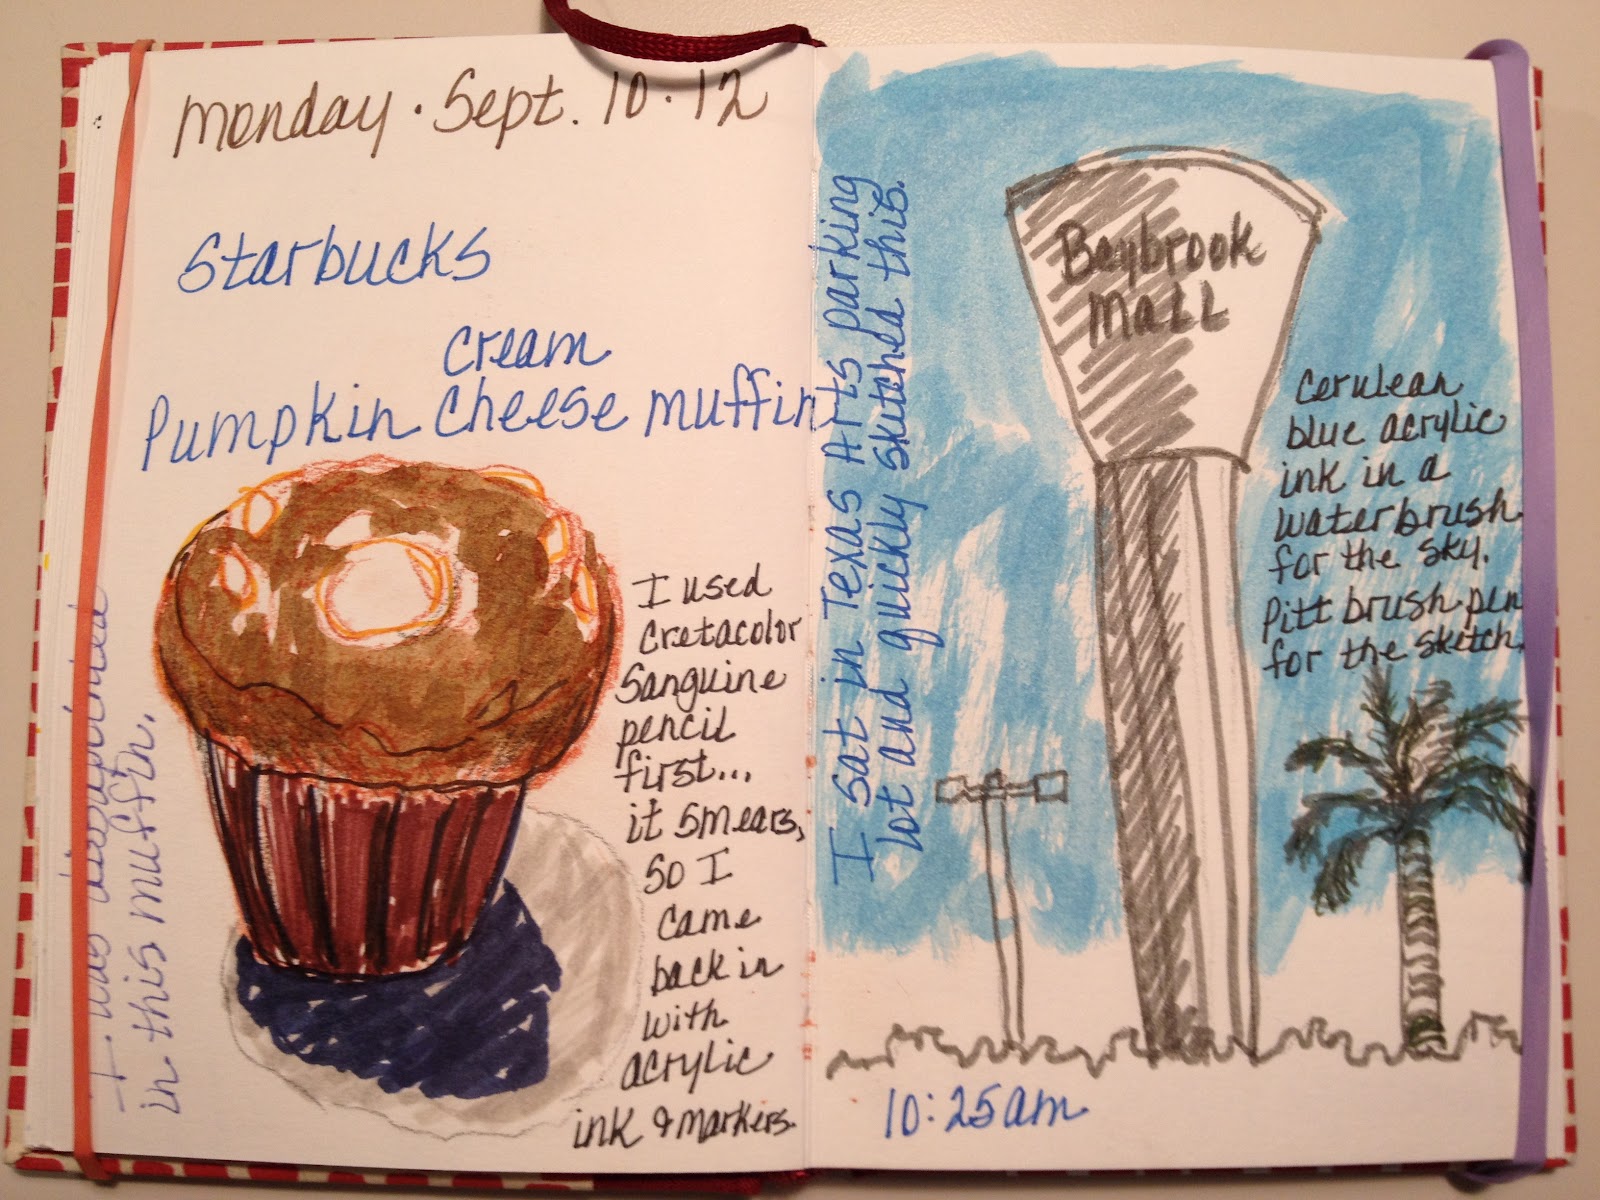 Monday · Sept. 10 · 12
Starbucks
cream
Pumpkin cheese muffin
I was disappointed
in this muffin.
I used
Cretacolor
Sanguine
pencil
first...
it smears,
so I
came
back in
with
acrylic
ink & markers.
I sat in Texas Arts parking
lot and quickly sketched this.
Baybrook
Mall
Cerulean
blue acrylic
ink in a
waterbrush
for the sky.
Pitt brush pen
for the sketch.
10:25am